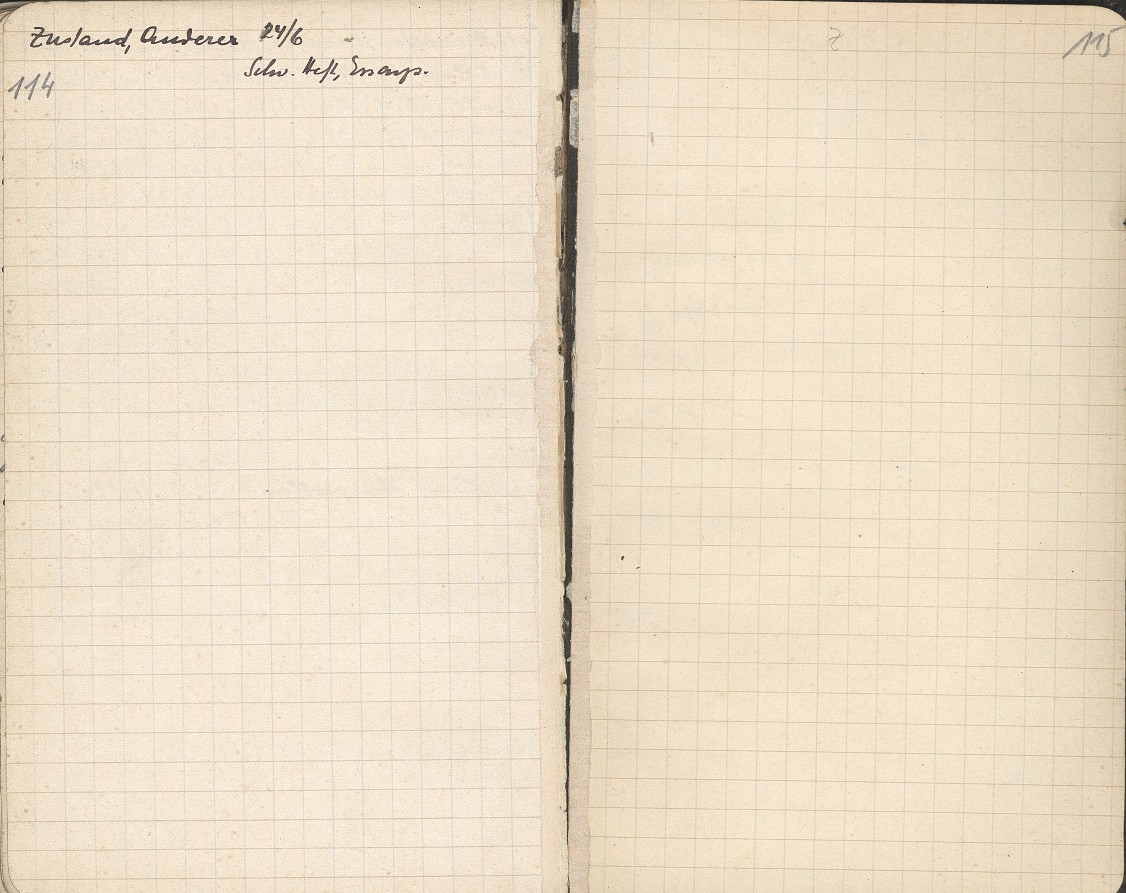 Zustand, Anderer 24/6
Schw. Heft, Essays.
114
Z
115